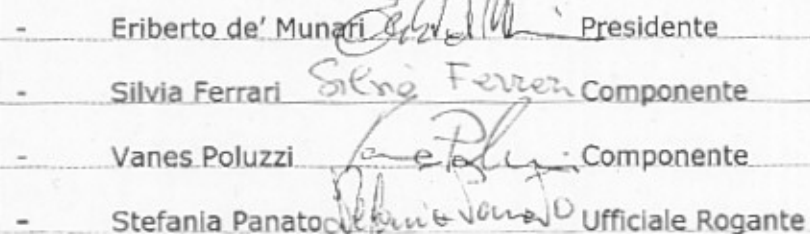 - Eriberto de' Munari Presidente
- Silvia Ferrari Silvia Ferrari Componente
- Vanes Poluzzi Componente
- Stefania Panato Stefania Panato Ufficiale Rogante